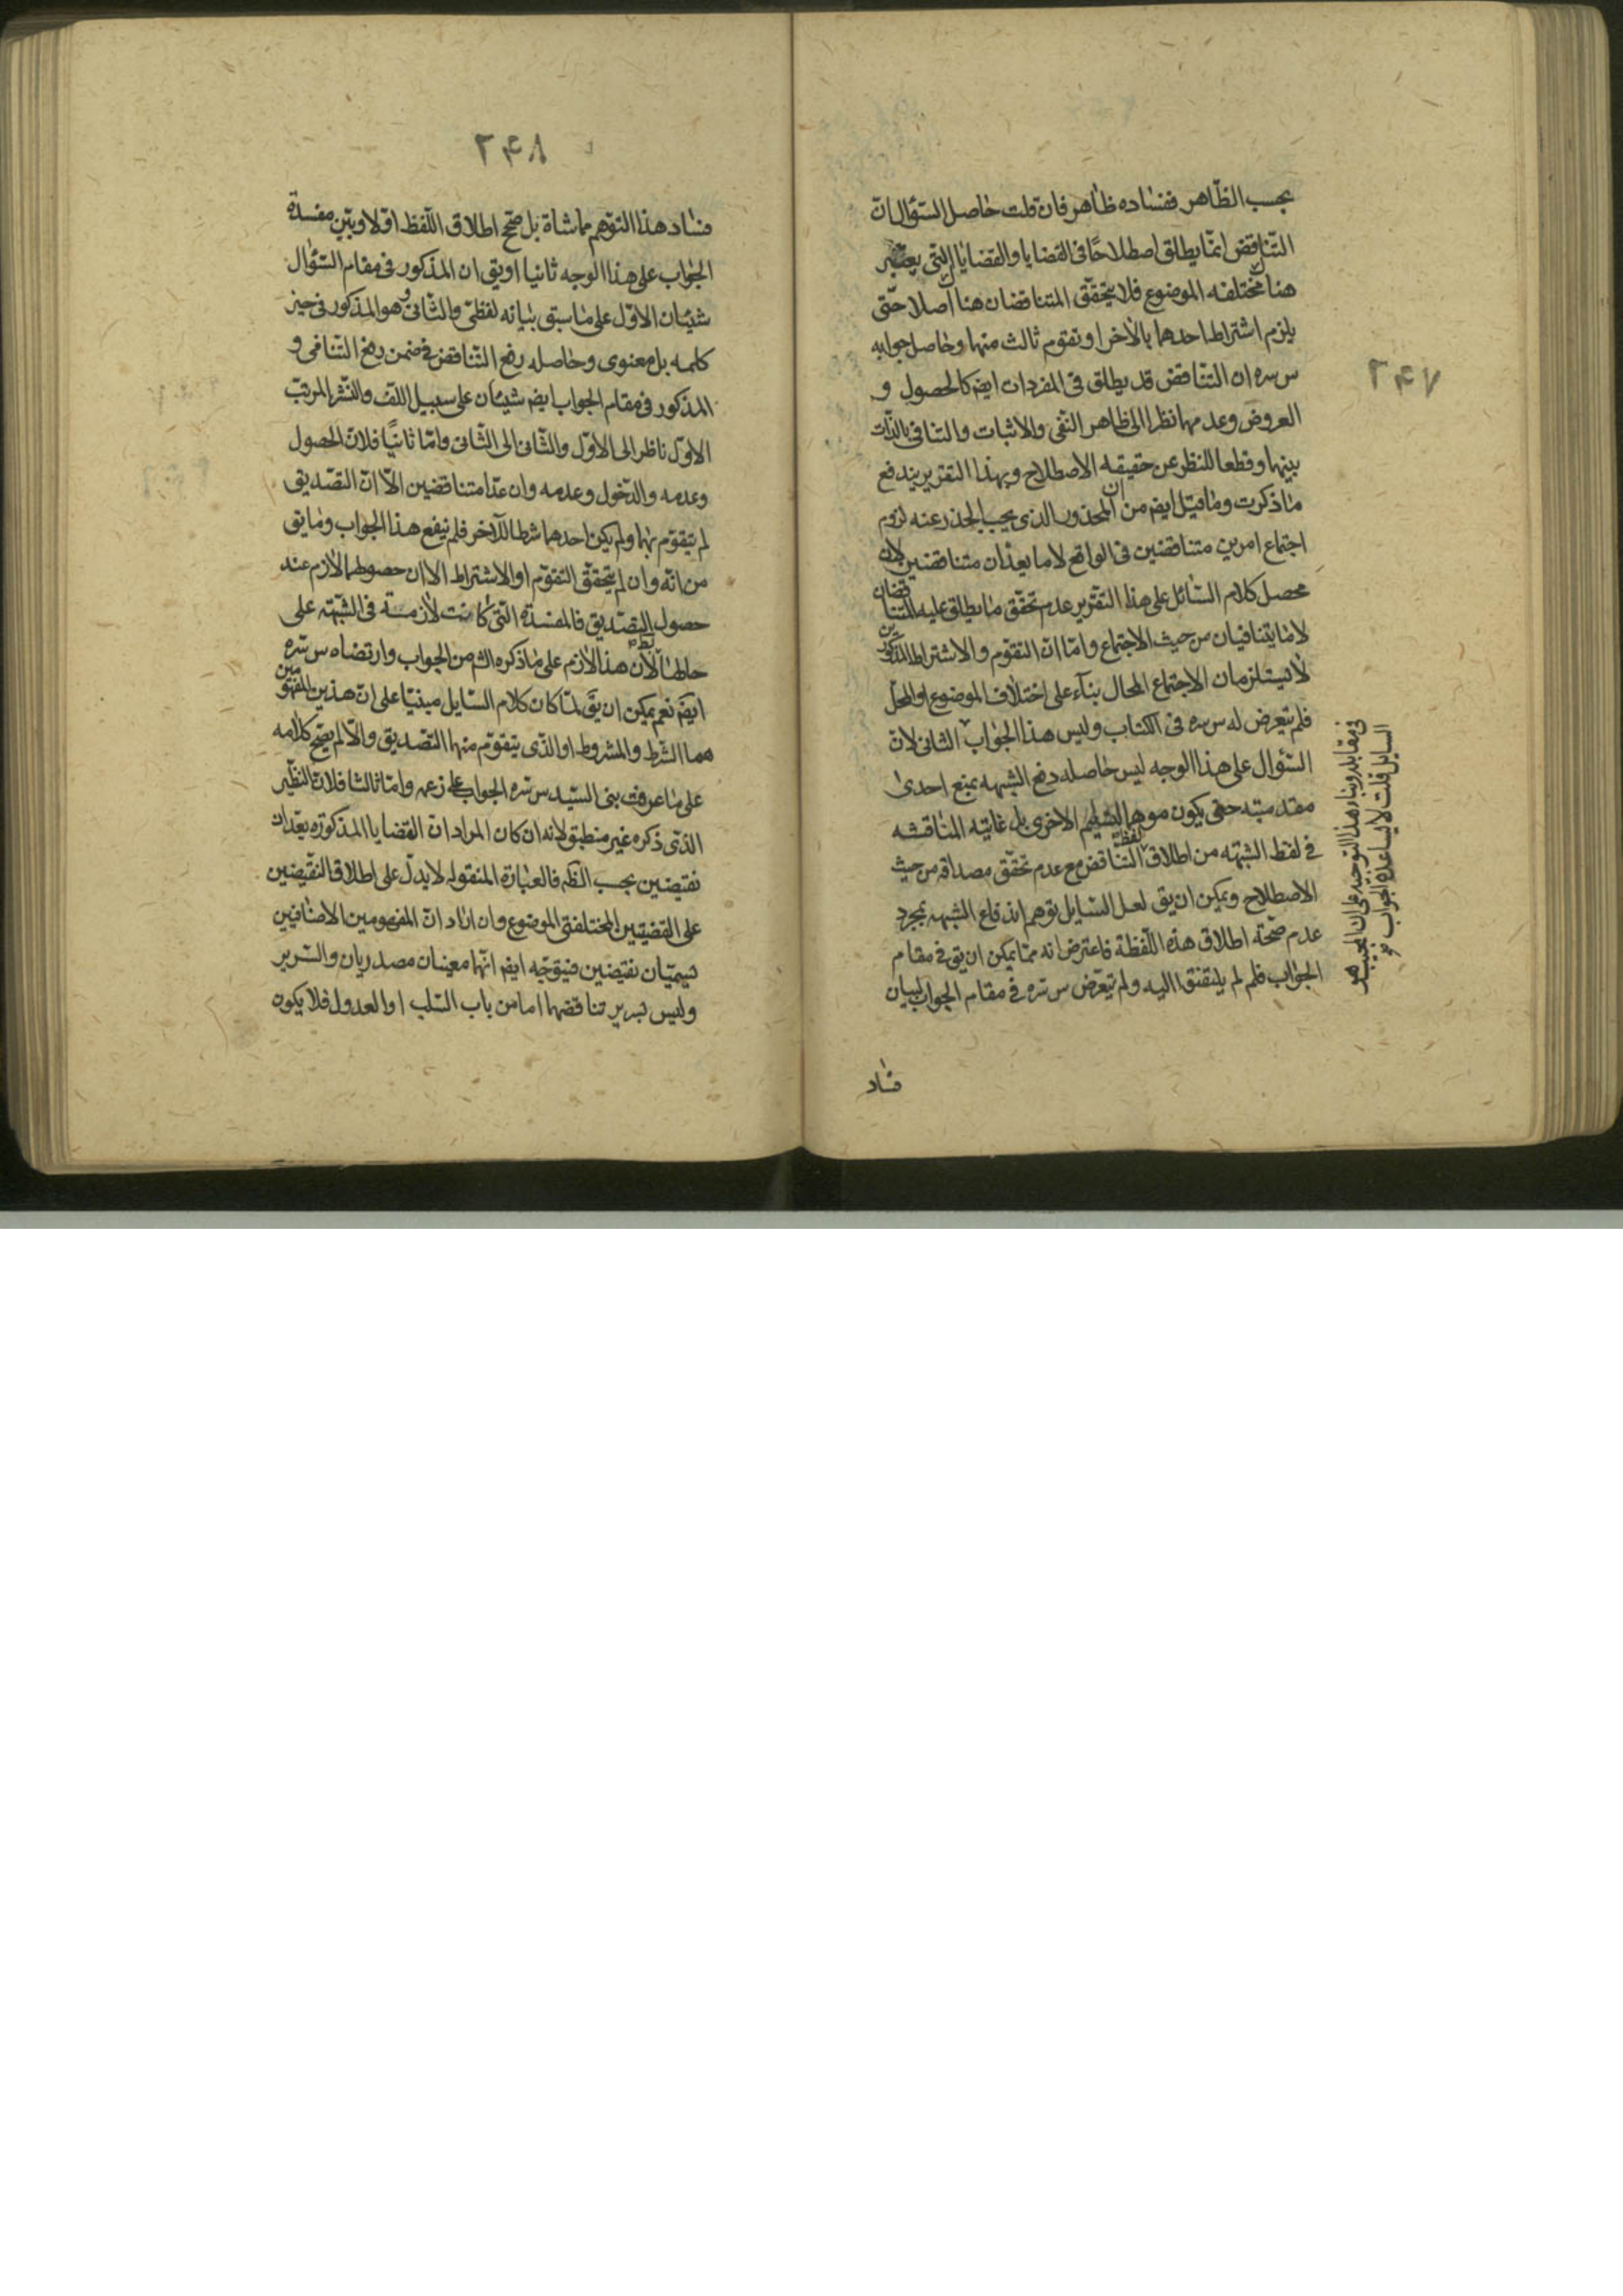 ٢٤٧
بحسب الظّاهر ففساده ظاهر فان قلت حاصل السّؤال انّ
التّناقض انمّا يطلق اصطلاحًا فى القضايا والقضايا الّتى يعتبر
هنا مختلفه الموضوع فلا يتحقّق المتناقضان هنا اصلا حتّى
يلزم اشتراط احدهما بالاخر او تقوم ثالث منها وحاصل جوابه
س سره ان التّناقض قد يطلق فى المفردات ايضم كالحصول و
العروض وعدمهما نظرا الى ظاهر النّفى والاثبات والتنافى بالذّات
بينهما وقطعا للنظر عن حقيقه الاصطلاح وبهذا التقرير يندفع
ما ذكرت وما قيل ايضم من ان المحذور الذى يجب الحذر عنه لزوم
اجتماع امرين متناقضين فى الواقع لا ما يعدّان متناقضين لان
محصل كلام السّائل على هذا التقرير عدم تحقّق ما يطلق عليه المتناقضان
لا ما يتنافيان من حيث الاجتماع وامّا انّ التقوّم والاشتراط المذكورين
لا يستلزمان الاجتماع المحال بنآء على اختلاف الموضوع او المحلّ
فلم يتعرض له س سره فى الكتاب وليس هذا الجواب الثانى لانّ
السّؤال على هذا الوجه ليس حاصله دفع الشبهه بمنع احدى
مقدمتيه حتى يكون موهما لتسليم الاخرى بل غايته المناقشه
فى لفظ الشبهه من اطلاق لفظة التّناقض مع عدم تحقّق مصداقه من حيث
الاصطلاح ويمكن ان يق لعل السّايل توهم اندفاع الشبهه بمجرد
عدم صحّته اطلاق هذه اللّفظة فاعترض انه ممّا يمكن ان يق فى مقام
الجواب فلم لم يلتفتوا اليه ولم يتعرّض س سره فى مقام الجواب لبيان
فساد
فى مقابله وبناء هذا التوجيه على ان المجيب هو
السايل قلت لا يساعده الجواب
٢٤٨
فساد هذا التوهم مماشاة بل صحّح اطلاق اللّفظ اوّلا وبيّن مفسدة
الجواب على هذا الوجه ثانيا او يق ان المذكور فى مقام السّؤال
شيئان الاوّل على ما سبق بيانه لفظىّ والثّانى وهو المذكور فى حيز
كلمه بل معنوى وحاصله رفع التّناقض فى ضمن رفع التّنافى و
المذكور فى مقام الجواب ايضم شيئان على سبيل اللّف والنّشر المرتب
الاوّل ناظر الى الاوّل والثّانى الى الثّانى وامّا ثانيًا فلانّ الحصول
وعدمه والدّخول وعدمه وان عدّا متناقضين الّا انّ التصّديق
لم يتقوّم بهما ولم يكن احدهما شرطا للآخر فلم ينفع هذا الجواب وما يق
من انّه وان لم يتحقّق التقوّم او الاشتراط الا ان حصولهما لازم عند
حصول التصّديق فالمفسدة الّتى كانت لازمة فى الشّبهه على
حالها لان هذا لازم على ما ذكره الش من الجواب وارتضاه س سره
ايضم نعم يمكن ان يق لمّا كان كلام السّايل مبنيّا على انّ هذين المفهومين
هما الشّرط والمشروط او الذّى يتقوّم منهما التّصديق والّا لم يصحّ كلامه
على ما عرفت بنى السيّد س سره الجواب على زعمه وامّا ثالثا فلانّ النّظير
الذّى ذكره غير منطبق لانه ان كان المراد انّ القضايا المذكوره يعدّان
نقيضين بحسب الظم فالعبارة المنقوله لا يدلّ على اطلاق النّقيضين
على القضيتين المختلفتى الموضوع وان اراد انّ المفهومين الاضافيين
يسميّان نقيضين فيتوجّه ايضم انّهما معنيان مصدريان والسّرير
وليس بسرير تناقضهما اما من باب السّلب او العدول فلا يكون